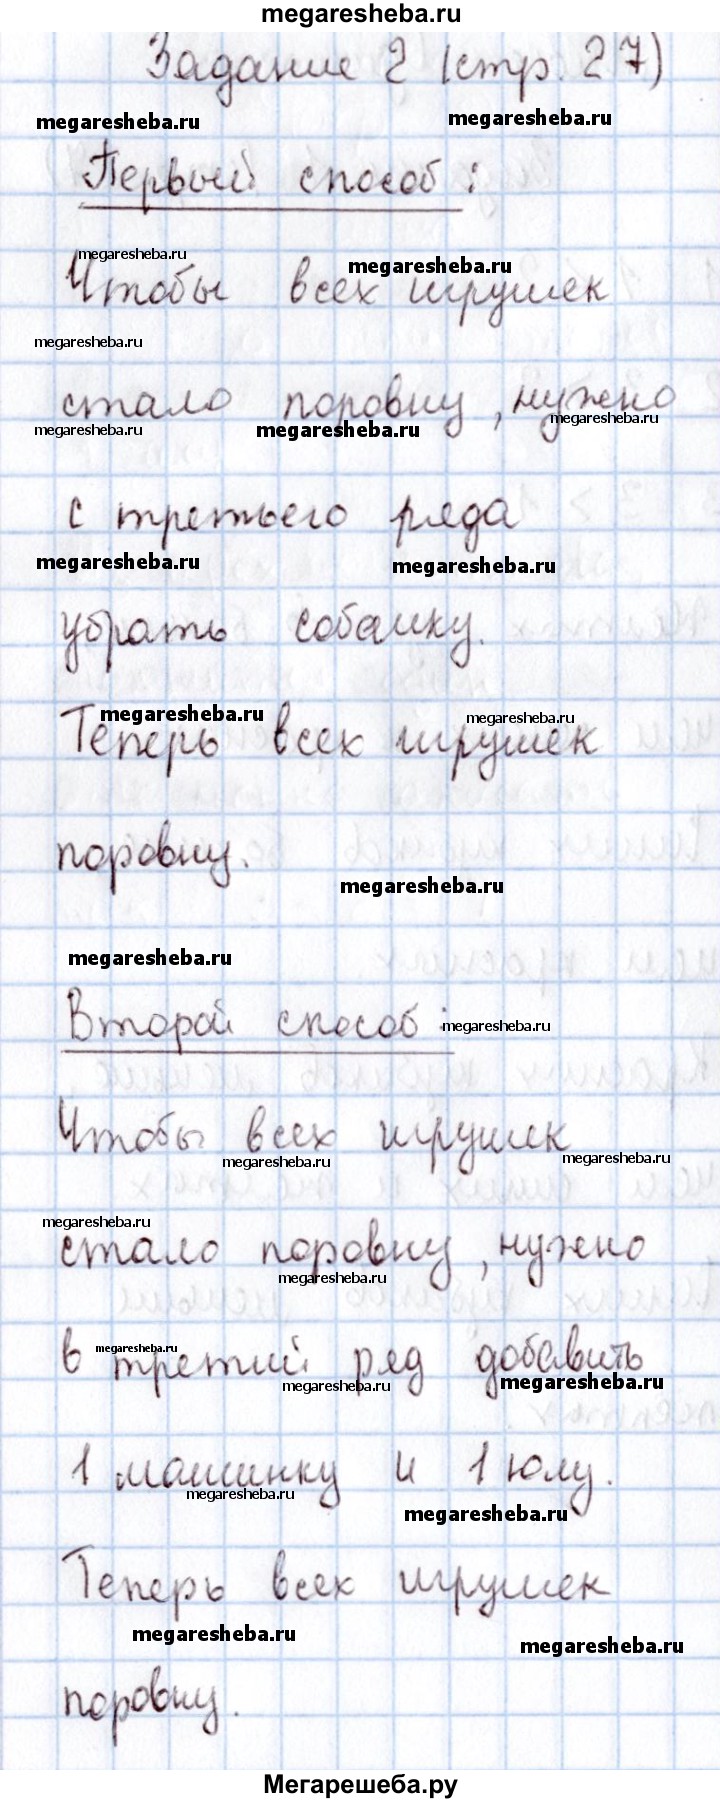 megaresheba.ru
Задание 2 (стр. 27)
megaresheba.ru megaresheba.ru
Первый способ:
megaresheba.ru megaresheba.ru
Чтобы всех игрушек
megaresheba.ru
стало поровну, нужно
megaresheba.ru megaresheba.ru megaresheba.ru
с третьего ряда
megaresheba.ru megaresheba.ru
убрать собачку.
megaresheba.ru megaresheba.ru
Теперь всех игрушек
поровну.
megaresheba.ru
megaresheba.ru
Второй способ:
megaresheba.ru
Чтобы всех игрушек
megaresheba.ru megaresheba.ru
megaresheba.ru
стало поровну, нужно
megaresheba.ru
megaresheba.ru
в третий ряд добавить
megaresheba.ru megaresheba.ru
1 машинку и 1 юлу.
megaresheba.ru megaresheba.ru
Теперь всех игрушек
megaresheba.ru megaresheba.ru
поровну.
Мегарешеба.ру